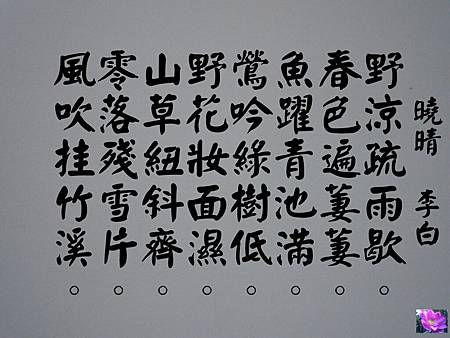 曉晴 李白
野涼疏雨歇。
春色遍萋萋。
魚躍青池滿。
鶯吟綠樹低。
野花妝面濕。
山草紐斜齊。
零落殘雪片。
風吹挂竹溪。